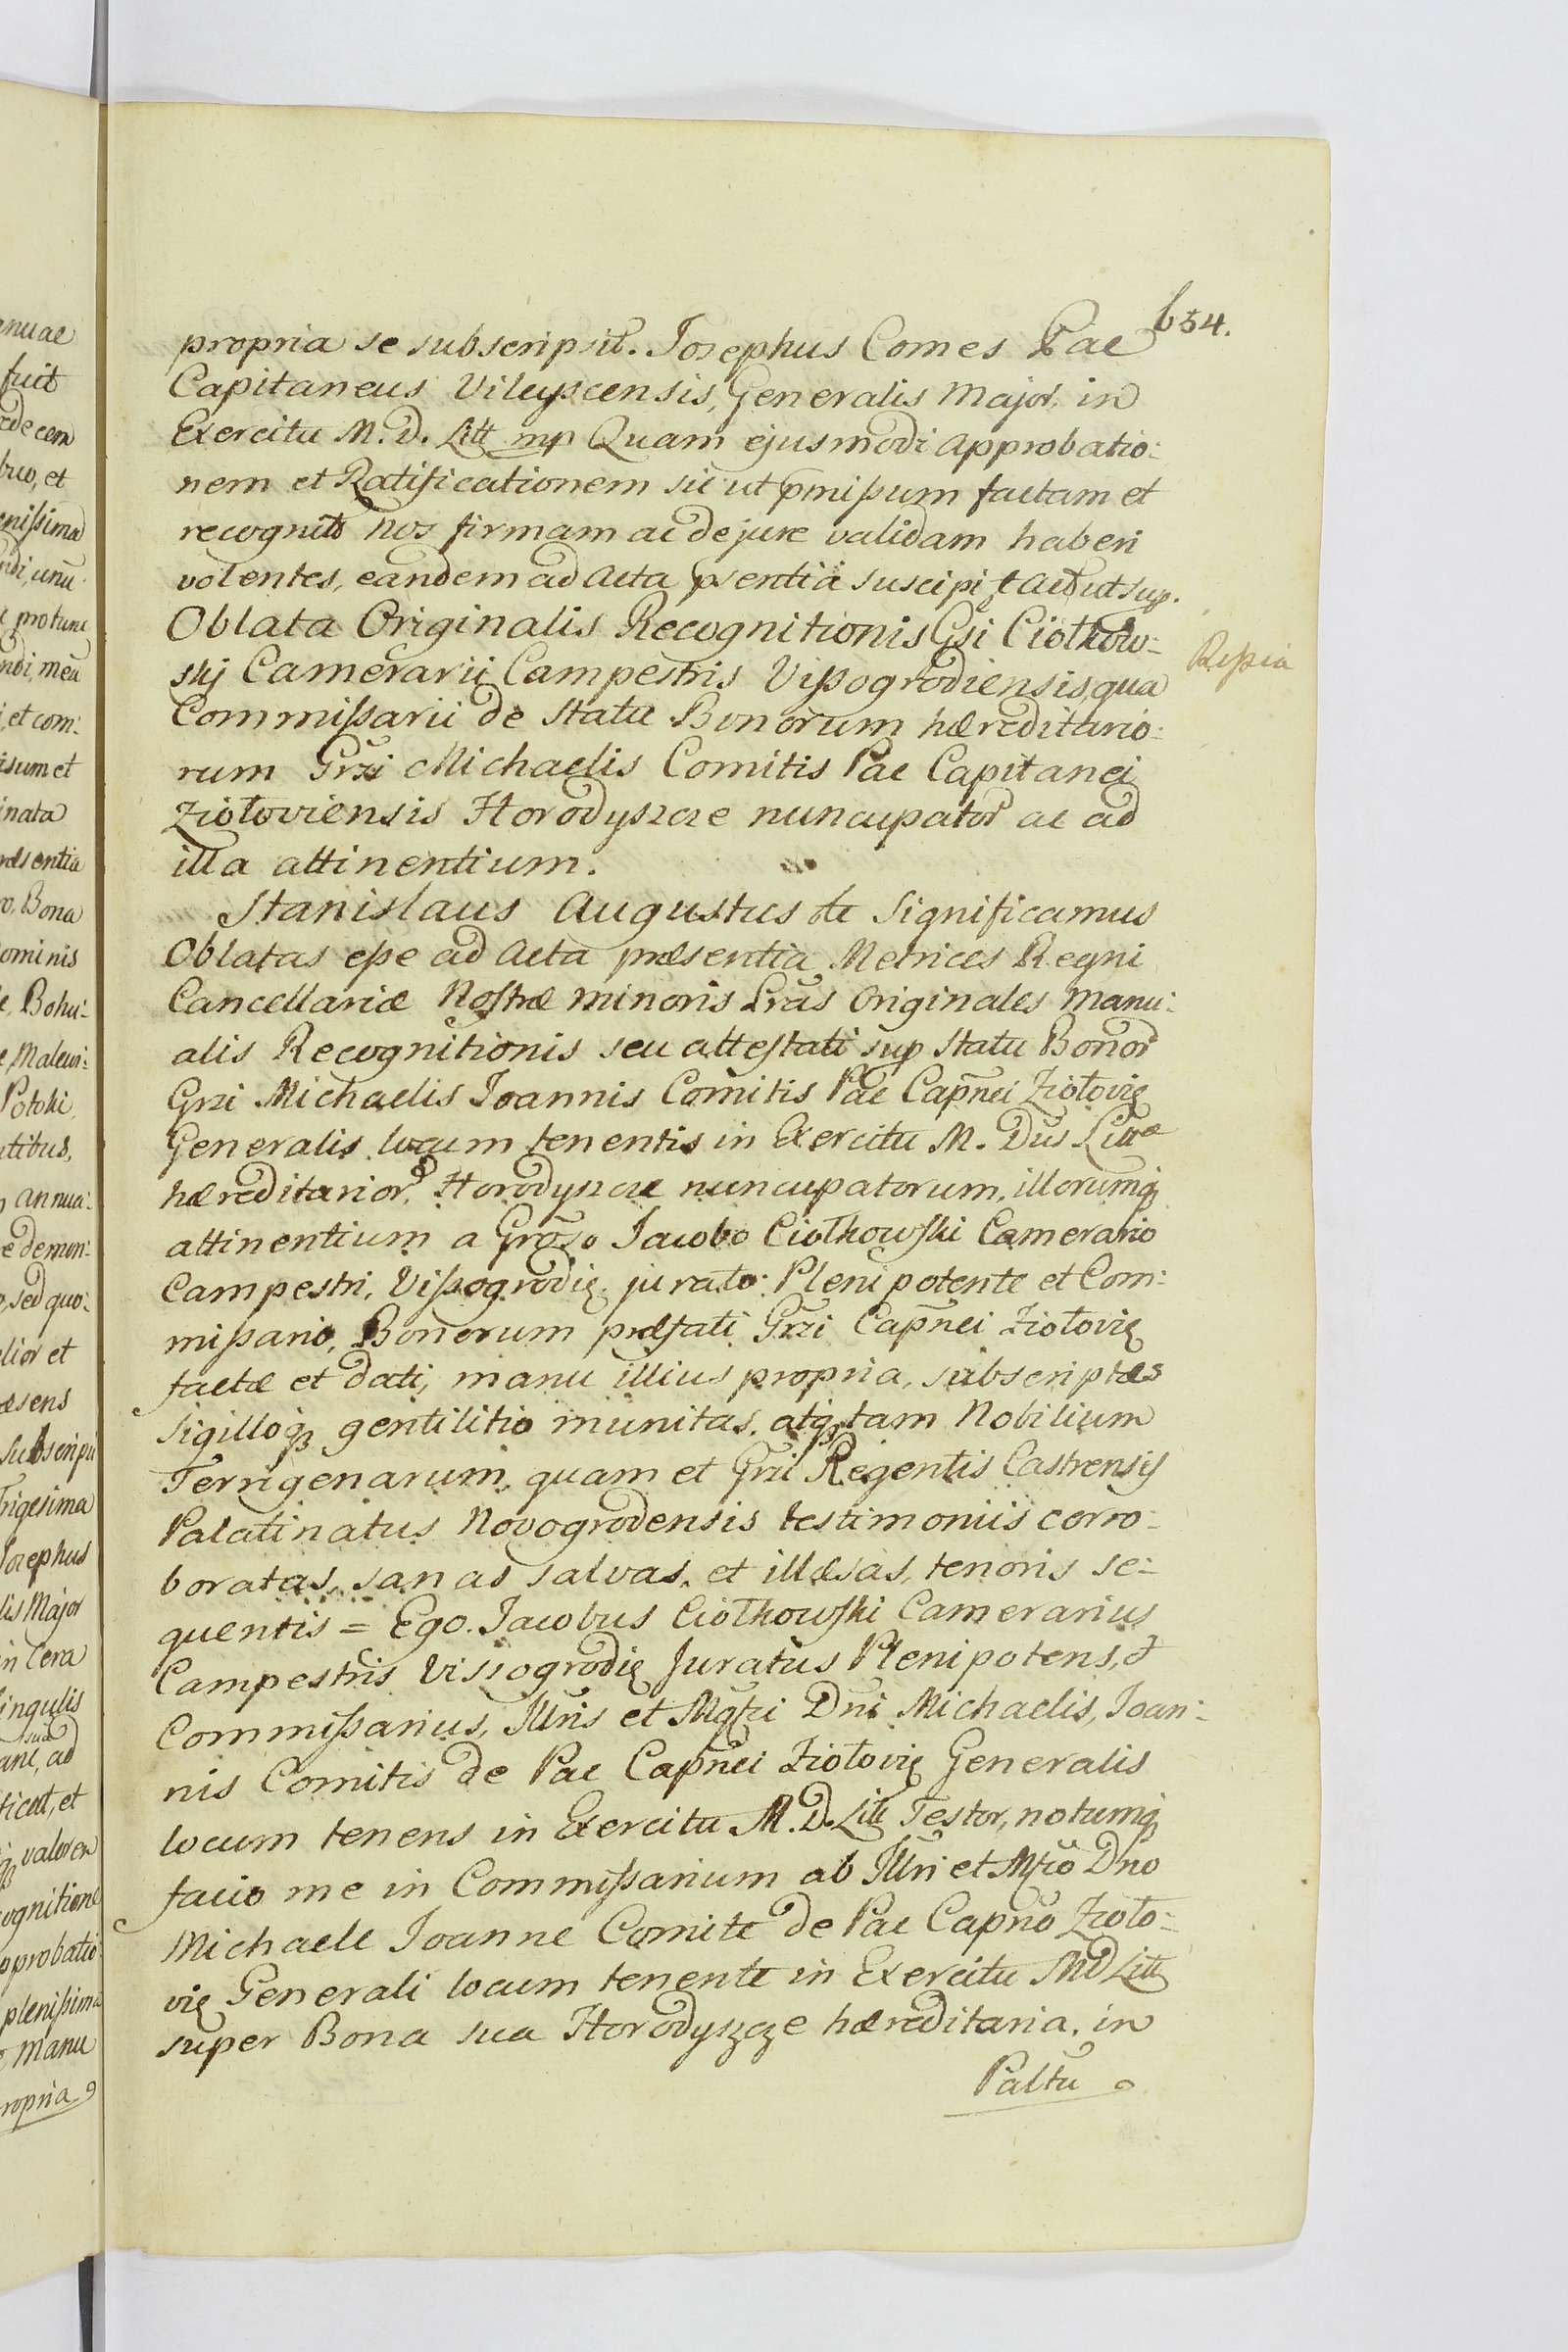 654.
propria se subscripsit. Josephus Comes Pac
Capitaneus Vileyscensis, Generalis Major, in
Exercitu M. D. Litt mp Quam ejusmodi approbatio:
nem et Ratificationem sic ut pmißum factam et
recognit̃ Nos firmam ac de jure validam haberi
volentes, eandem ad Acta psentia suscipi & Act ut sup.
Oblata Originalis Recognitionis Gsi Ciołkow:
skj Camerarii Campestris Vißogrodiensis, qua
Commißarii de Statu Bonorum hæreditario:
rum Grzi Michaelis Comitis Pac Capitanei
Ziołoviensis Horodyszcze nuncupator̃ ac ad
illa attinentium.
Reßcia
Stanislaus Augustus &c Significamus
Oblatas eße ad Acta præsentia Metrices Regni
Cancellariæ Nostræ minoris Lrãs Originales manu:
alis Recognitionis seu attestati sup Statu Bonor̃
Grzi Michaelis Joannis Comitis Pac Capñei Ziołovię
Generalis locum tenentis in Exercitu M. Dũs Littæ
hæreditarior̃, Horodyszcze nuncupatorum, illorumq
attinentium a Grõzo Jacobo Ciołkowski Camerario
Campestri, Vißogrodię jurato: Plenipotente et Com:
mißario, Bonorum præfati Grzi Capñei Ziołovię
factæ et dati, manu illius propria, subscriptas
sigilloq gentilitio munitas, atq tam Nobilium
Terrigenarum, quam et Grzi Regentis Castrensis
Palatinatus Novogrodensis testimoniis corro:
boratas, sanas salvas, et illæsas, tenoris se:
quentis = Ego Jacobus Ciołkowski Camerarius
Campestris Viszogrodię Juratus Plenipotens, &
Commißarius, Illris et Mgfci Dni Michaelis, Joan:
nis Comitis de Pac Capñei Ziołovię Generalis
locum tenens in Exercitu M. D. Litt Testor, notumq
facio me in Commißarium ab Illri et Mfico Dno
Michaele Joanne Comite de Pac Capño Zioło:
vię Generali locum tenente in Exercitu MD Litt
super Bona sua Horodyszcze hæreditaria, in
Palttu